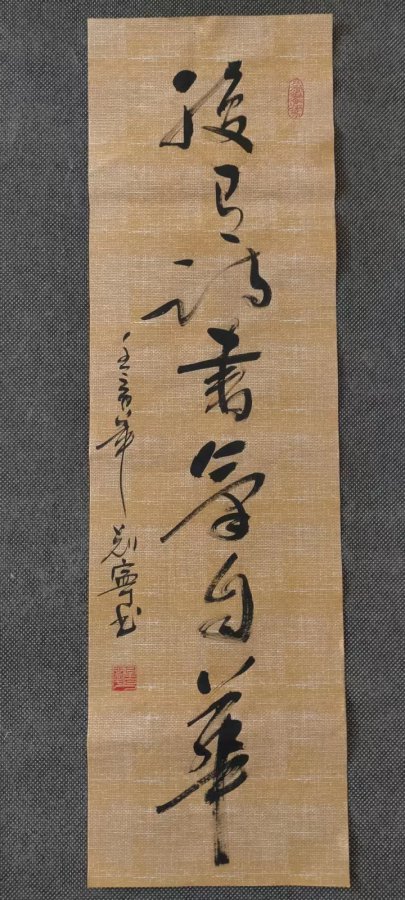 腹有詩書氣自華
壬寅年刘寧书